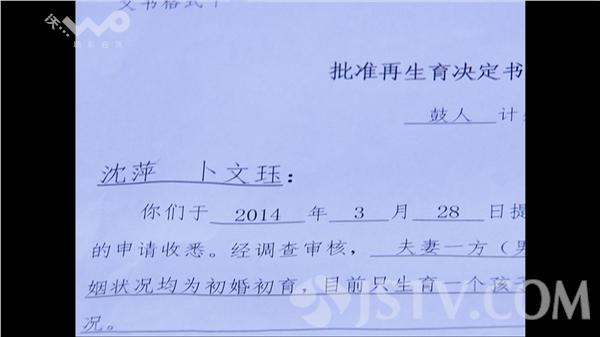 文书格式十
批准再生育决定书
鼓人 计
沈萍 卜文珏：
你们于 2014 年 3 月 28 日提
的申请收悉。经调查审核， 夫妻一方（男
姻状况均为初婚初育，目前只生育一个孩子
况。
JSTV.COM